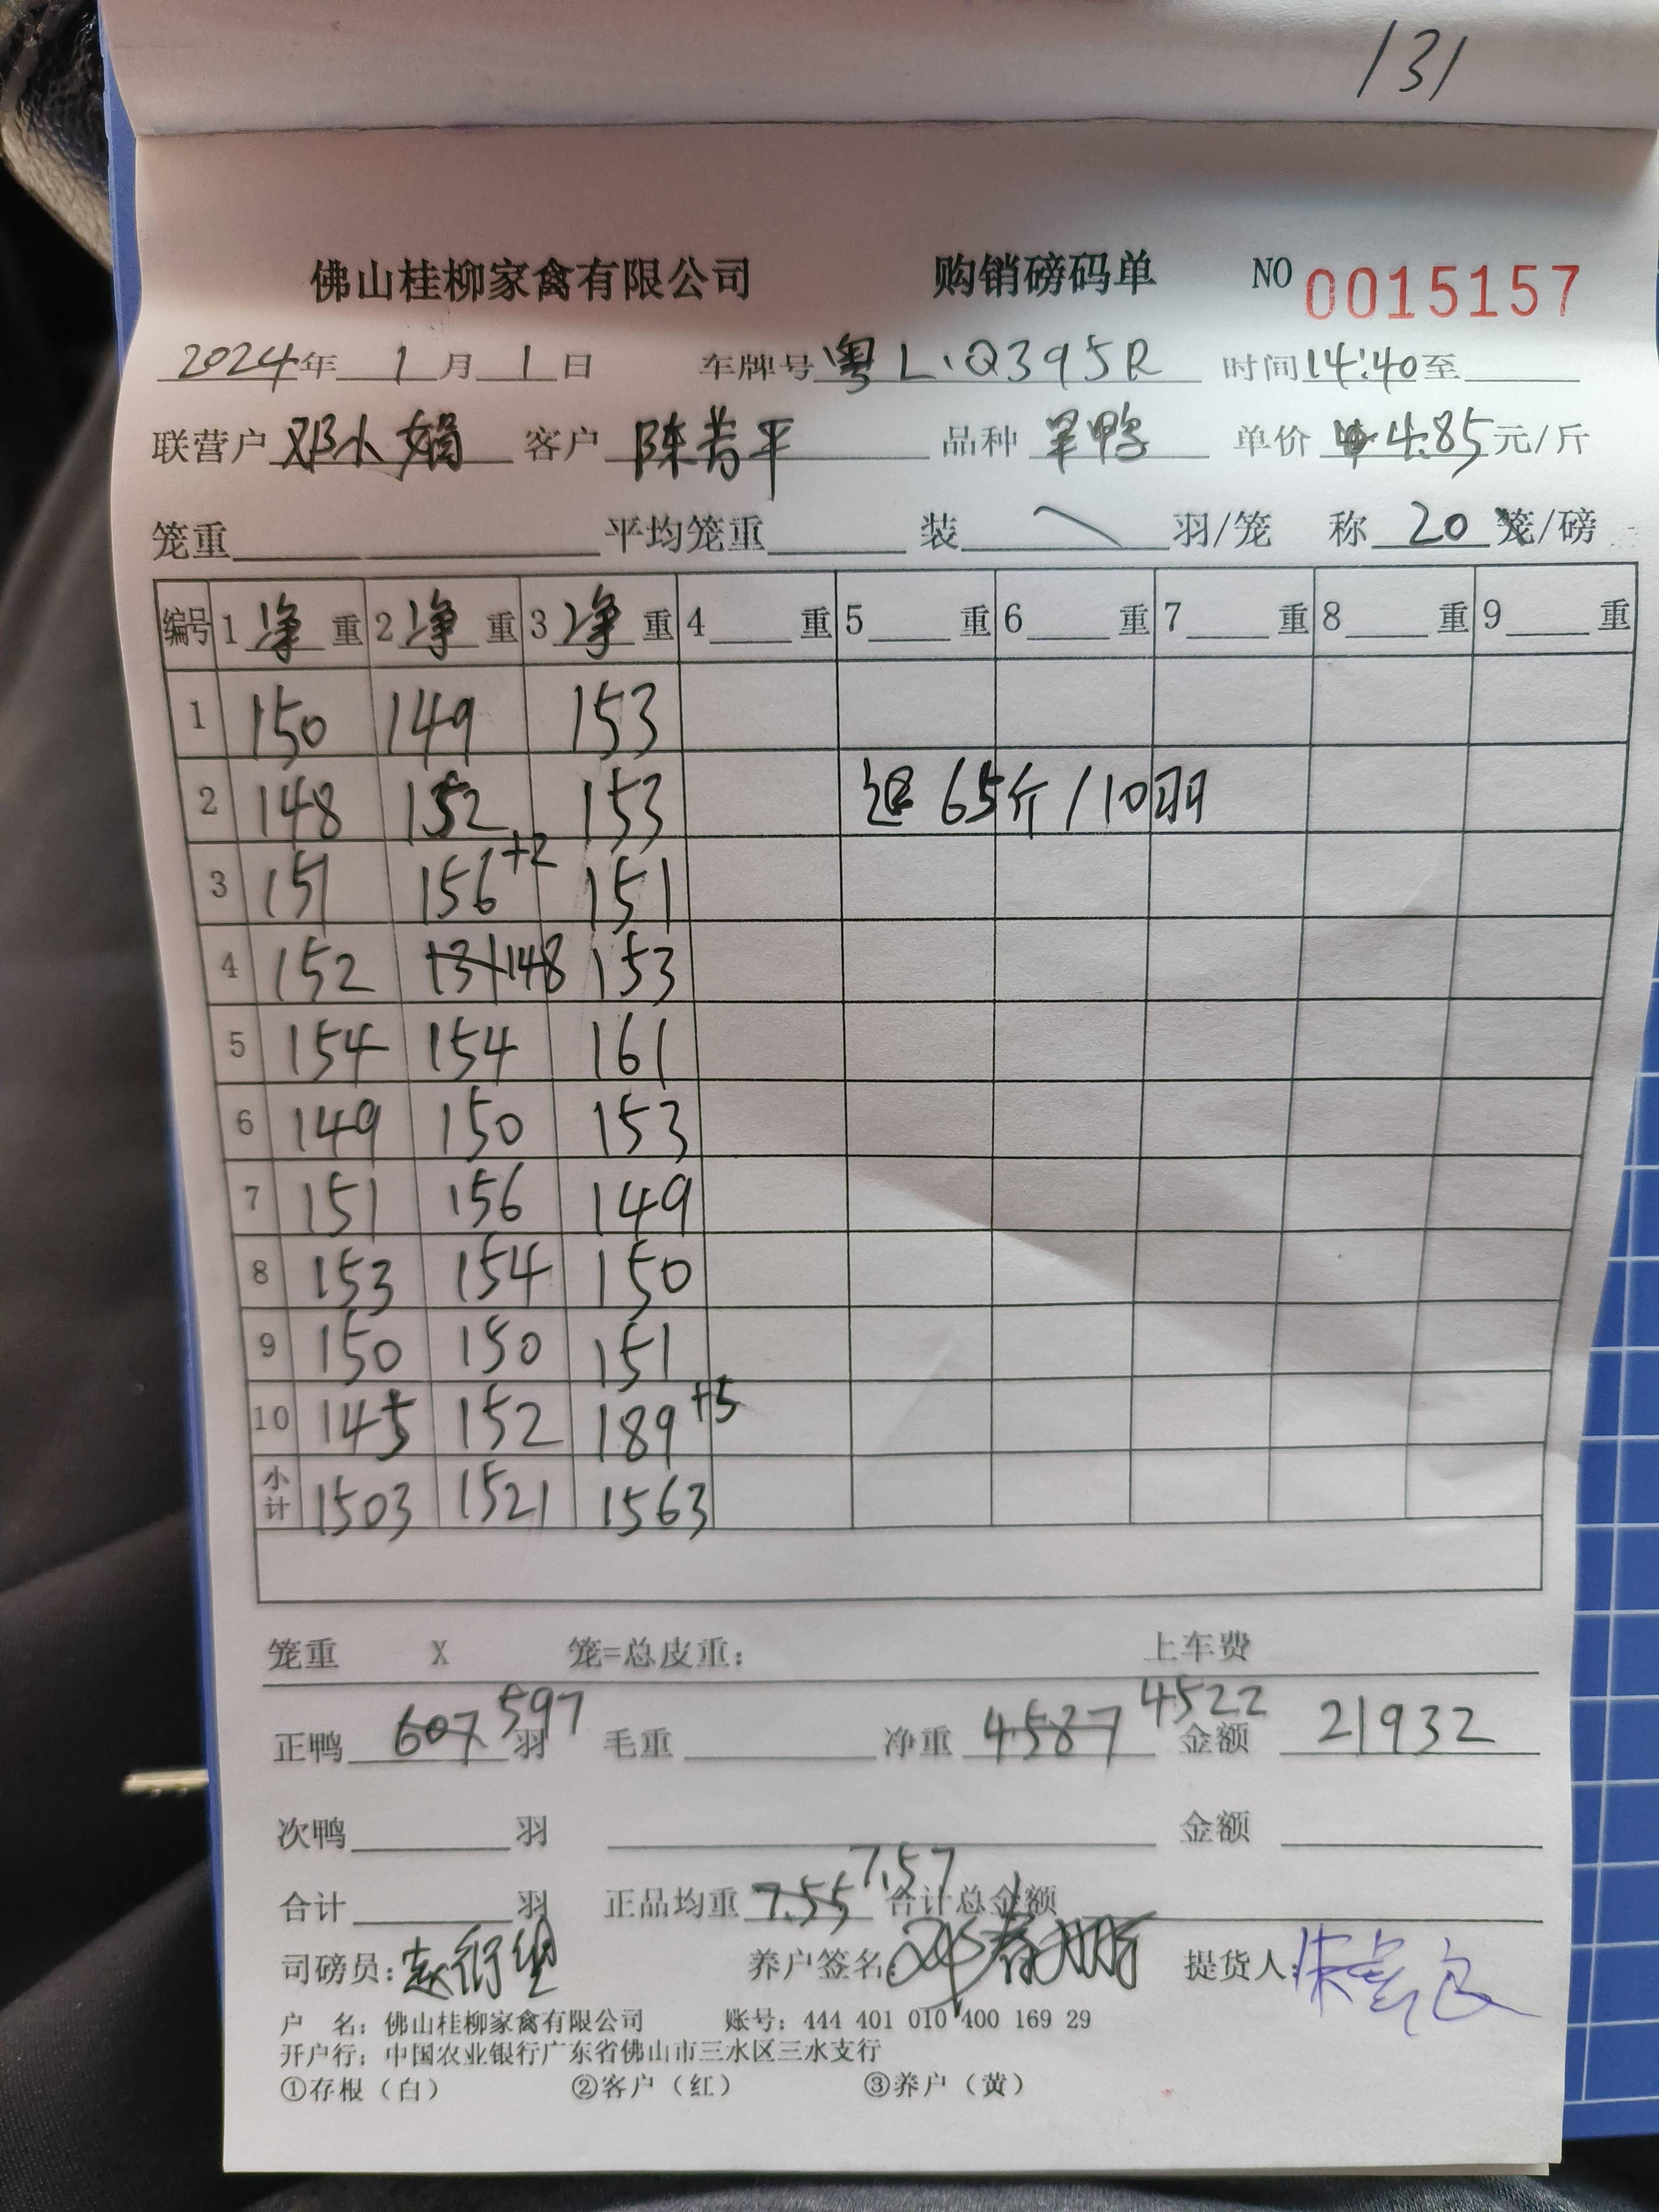 131
佛山桂柳家禽有限公司 购销磅码单 NO 0015157
2024年 1月 1日 车牌号 粤L·Q395R 时间 14:40至
联营户 邓小娟 客户 陈芳平 品种 旱鸭 单价 4.85元/斤
笼重 平均笼重 装 羽/笼 称 20 笼/磅
编号 1净重 2净重 3净重 4重 5重 6重 7重 8重 9重
1 150 149 153
2 148 152 153 退65斤/10羽
3 151 156+2 151
4 152 131 148 153
5 154 154 161
6 149 150 153
7 151 156 149
8 153 154 150
9 150 150 151
10 145 152 189+5
小计 1503 1521 1563
笼重 X 笼=总皮重: 上车费
正鸭 607 597 羽 毛重 净重 4587 4522 金额 21932
次鸭 羽 金额
合计 羽 正品均重 7.55 7.57 合计总金额
司磅员: 养户签名: 提货人:
户 名: 佛山桂柳家禽有限公司 账号: 444 401 010 400 169 29
开户行: 中国农业银行广东省佛山市三水区三水支行
①存根（白） ②客户（红） ③养户（黄）